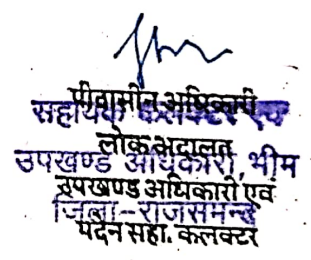 पीठासीन अधिकारी
सहायक कलक्टर एवं
लोक अदालत
उपखण्ड अधिकारी, भीम
उपखण्ड अधिकारी एवं
जिला-राजसमन्द
पदेन सहा. कलक्टर